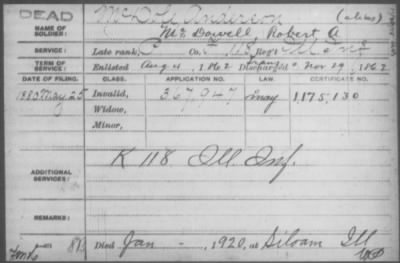 DEAD
NAME OF SOLDIER:
Anderson (alias)
McDowell, Robert A
SERVICE:
Late rank, Co. 118 Reg't Ill Inf
TERM OF SERVICE:
Enlisted Aug 4, 1862 Discharged Nov 29, 1862
DATE OF FILING. CLASS. APPLICATION NO. LAW. CERTIFICATE NO.
1880 May 25 Invalid, 367,947 1,175,130
Widow,
Minor,
ADDITIONAL SERVICES:
K 118 Ill. Inf.
REMARKS:
Died Jan - , 1920, at Siloam Ill